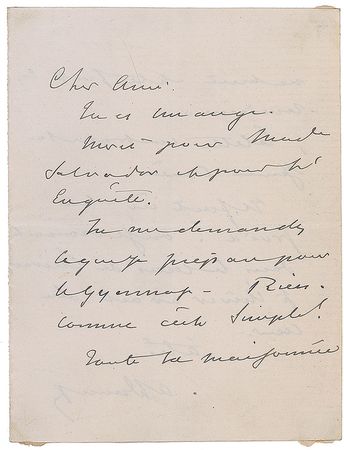 Cher Ami.
Tu es un ange.
Merci pour Made
Salvador et pour l'
Enquête.
Tu me demandes
ce que je prépare pour
le Gymnase - Rien.
comme c'est simple!
Toute la maisonnée